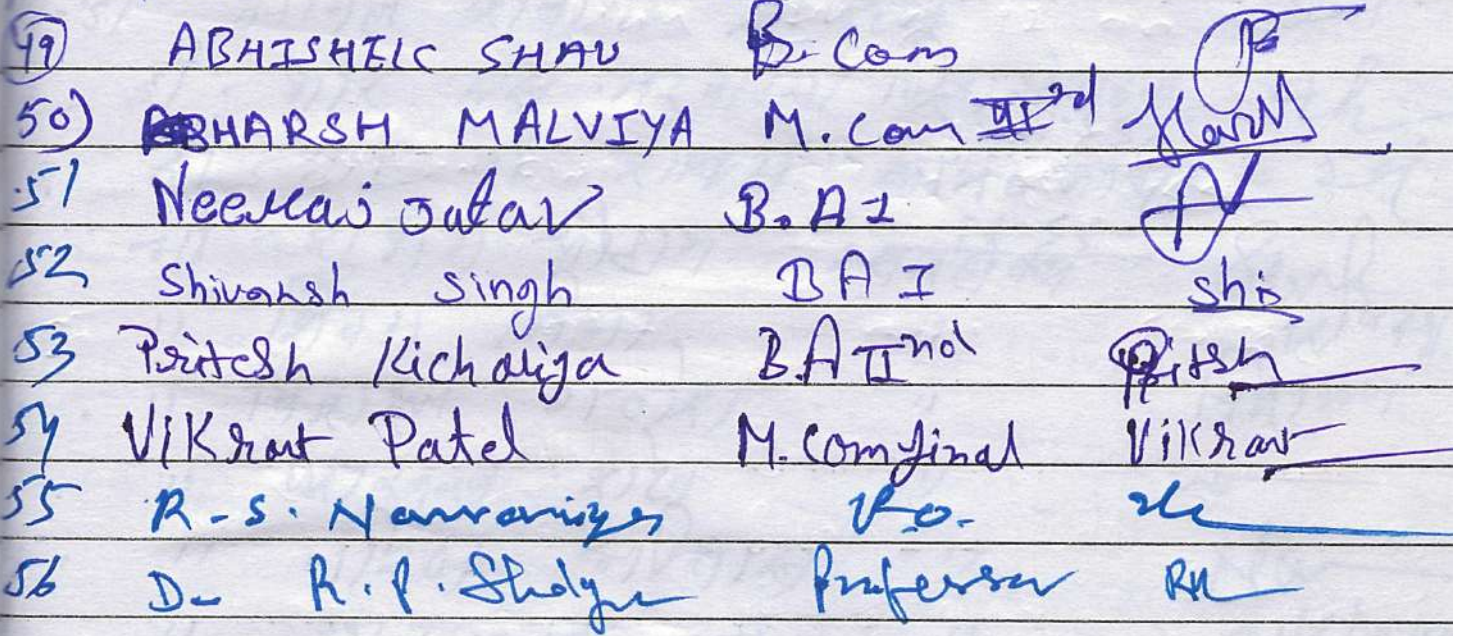 49 ABHISHEK SHAU B.Com
50) HARSH MALVIYA M.Com IInd Harsh
51 Neeraj Jatav B.A I
52 Shivansh Singh BA I Shi
53 Pritesh Kichaliya B.A IInd Pritesh
54 Vikrant Patel M.Com final Vikrant
55 R.S.
56 Dr R.P. Professor